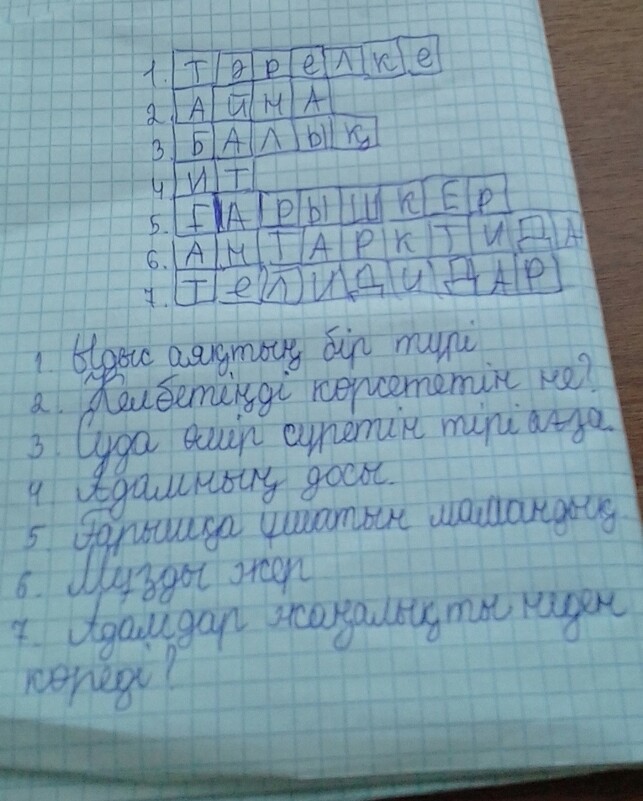 1. Тәрелке
2. АЙНА
3. БАЛЫҚ
4 ИТ
5. ҒАРЫШКЕР
6. АНТАРКТИДА
7. ТеЛИДИДАР
1. Ыдыс аяқтың бір түрі
2. Келбетіңді көрсететін не?
3. Суда өмір сүретін тірі ағза.
4 Адамның досы.
5. Ғарышқа ұшатын мамандық
6. Мұзды жер
7. Адамдар жаңалықты неден
көреді?